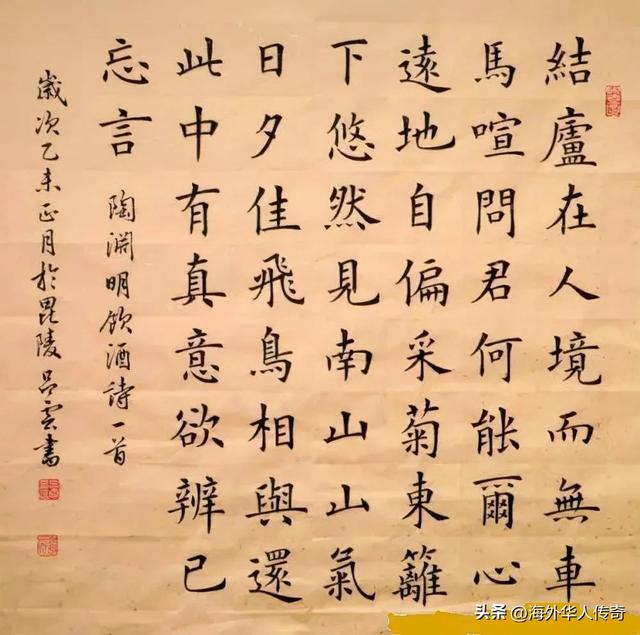 結廬在人境而無車
馬喧問君何能爾心
遠地自偏采菊東籬
下悠然見南山山氣
日夕佳飛鳥相與還
此中有真意欲辨已
忘言
陶淵明飲酒詩一首
歲次乙未正月於毘陵呂雲書
头条 @海外华人传奇